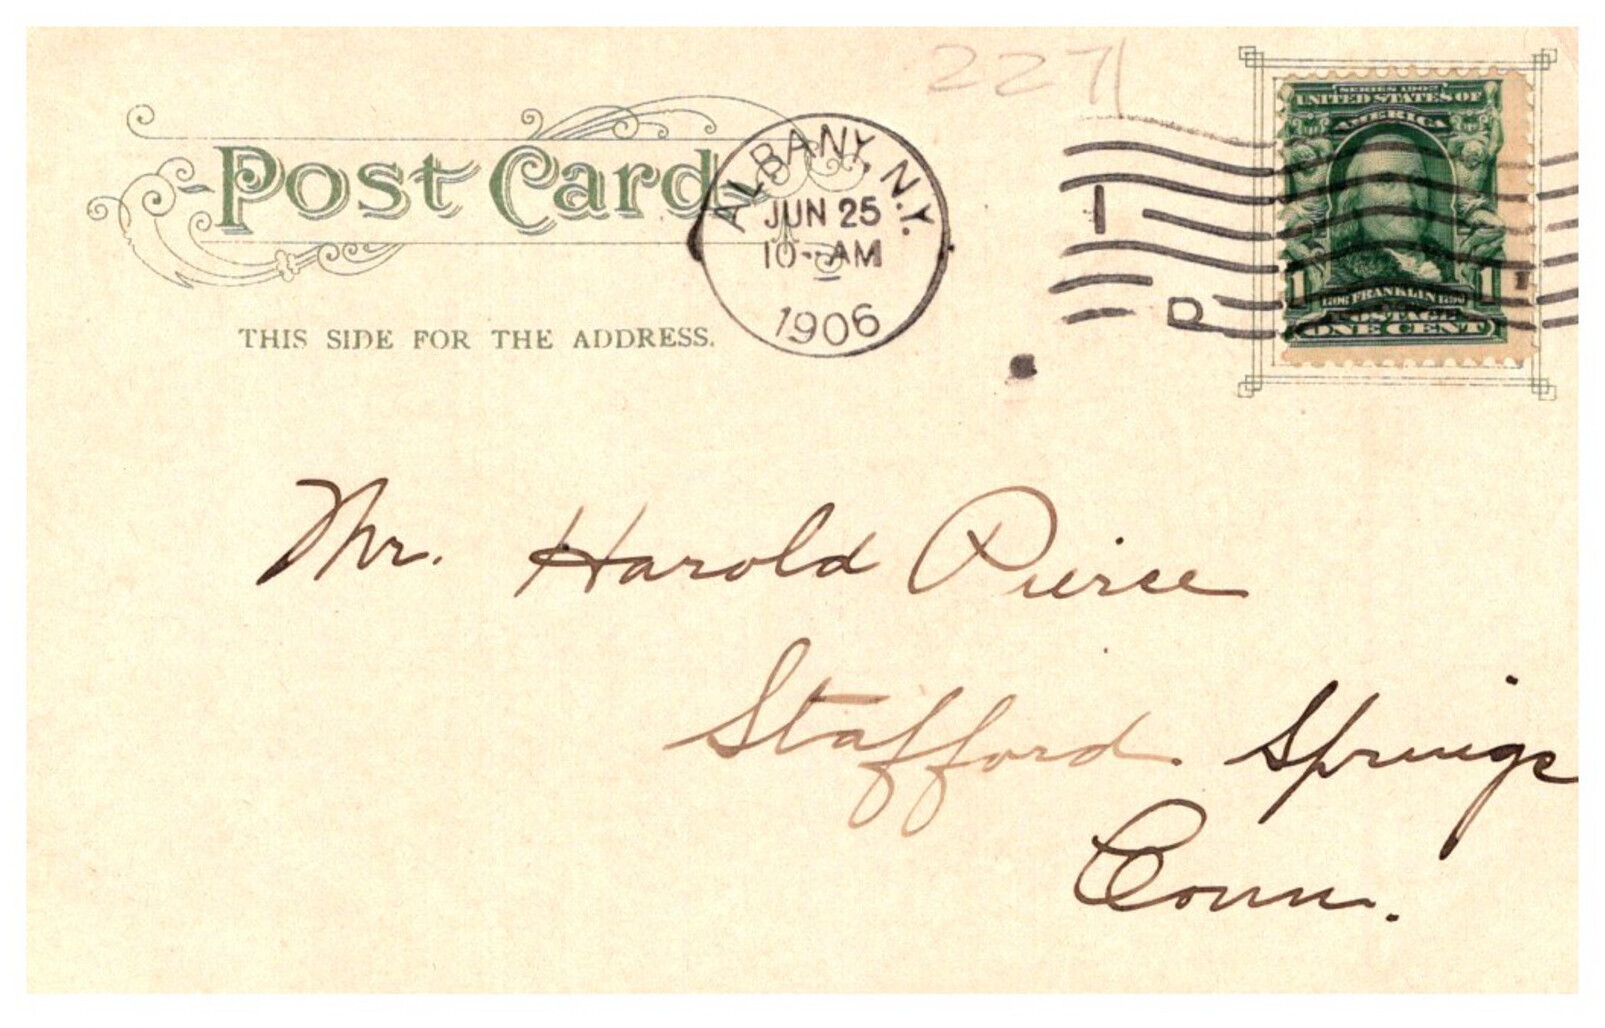 2271
Post Card
ALBANY, N.Y.
JUN 25
10-AM
1906
1
D
SERIES 1902
UNITED STATES OF
AMERICA
1706 FRANKLIN 1790
1 1
POSTAGE
ONE CENT
THIS SIDE FOR THE ADDRESS.
Mr. Harold Pierce
Stafford Springs
Conn.